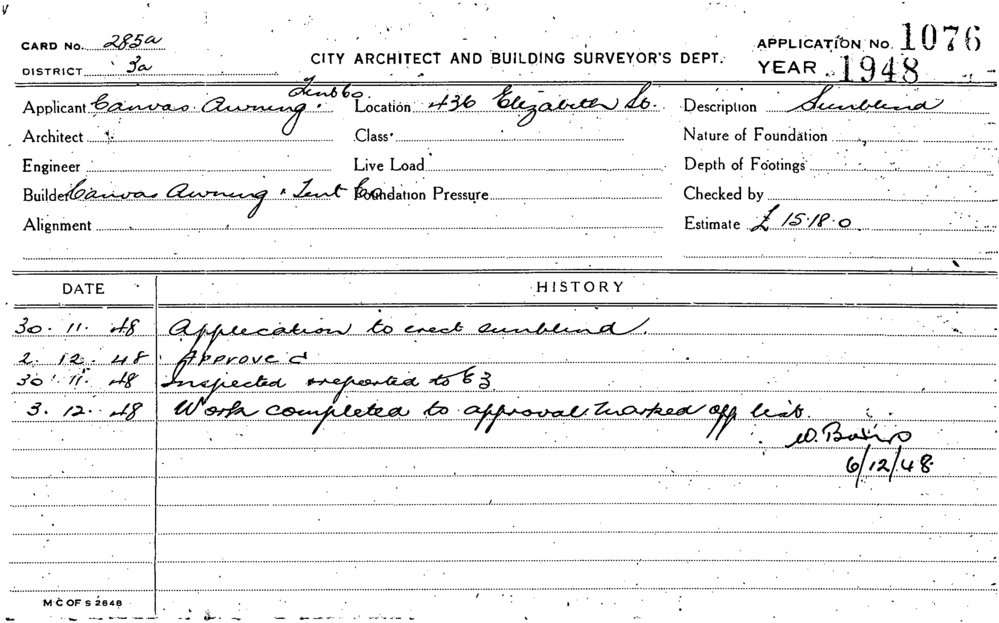 CARD No. 285a
CITY ARCHITECT AND BUILDING SURVEYOR'S DEPT.
APPLICATION No. 1076
DISTRICT 3a
YEAR 1948
Applicant Canvas Awning. Tent Co.
Location 436 Elizabeth St.
Description Sunblind
Architect
Class
Nature of Foundation
Engineer
Live Load
Depth of Footings
Builder Canvas Awning & Tent Co
Foundation Pressure
Checked by
Alignment
Estimate £ 15.18.0
DATE HISTORY
30. 11. 48 Application to erect sunblind.
2. 12. 48 Approved
30. 11. 48 Inspected & reported to
3. 12. 48 Work completed to approval marked off list.
W.
6/12/48.
M C OF S 2848